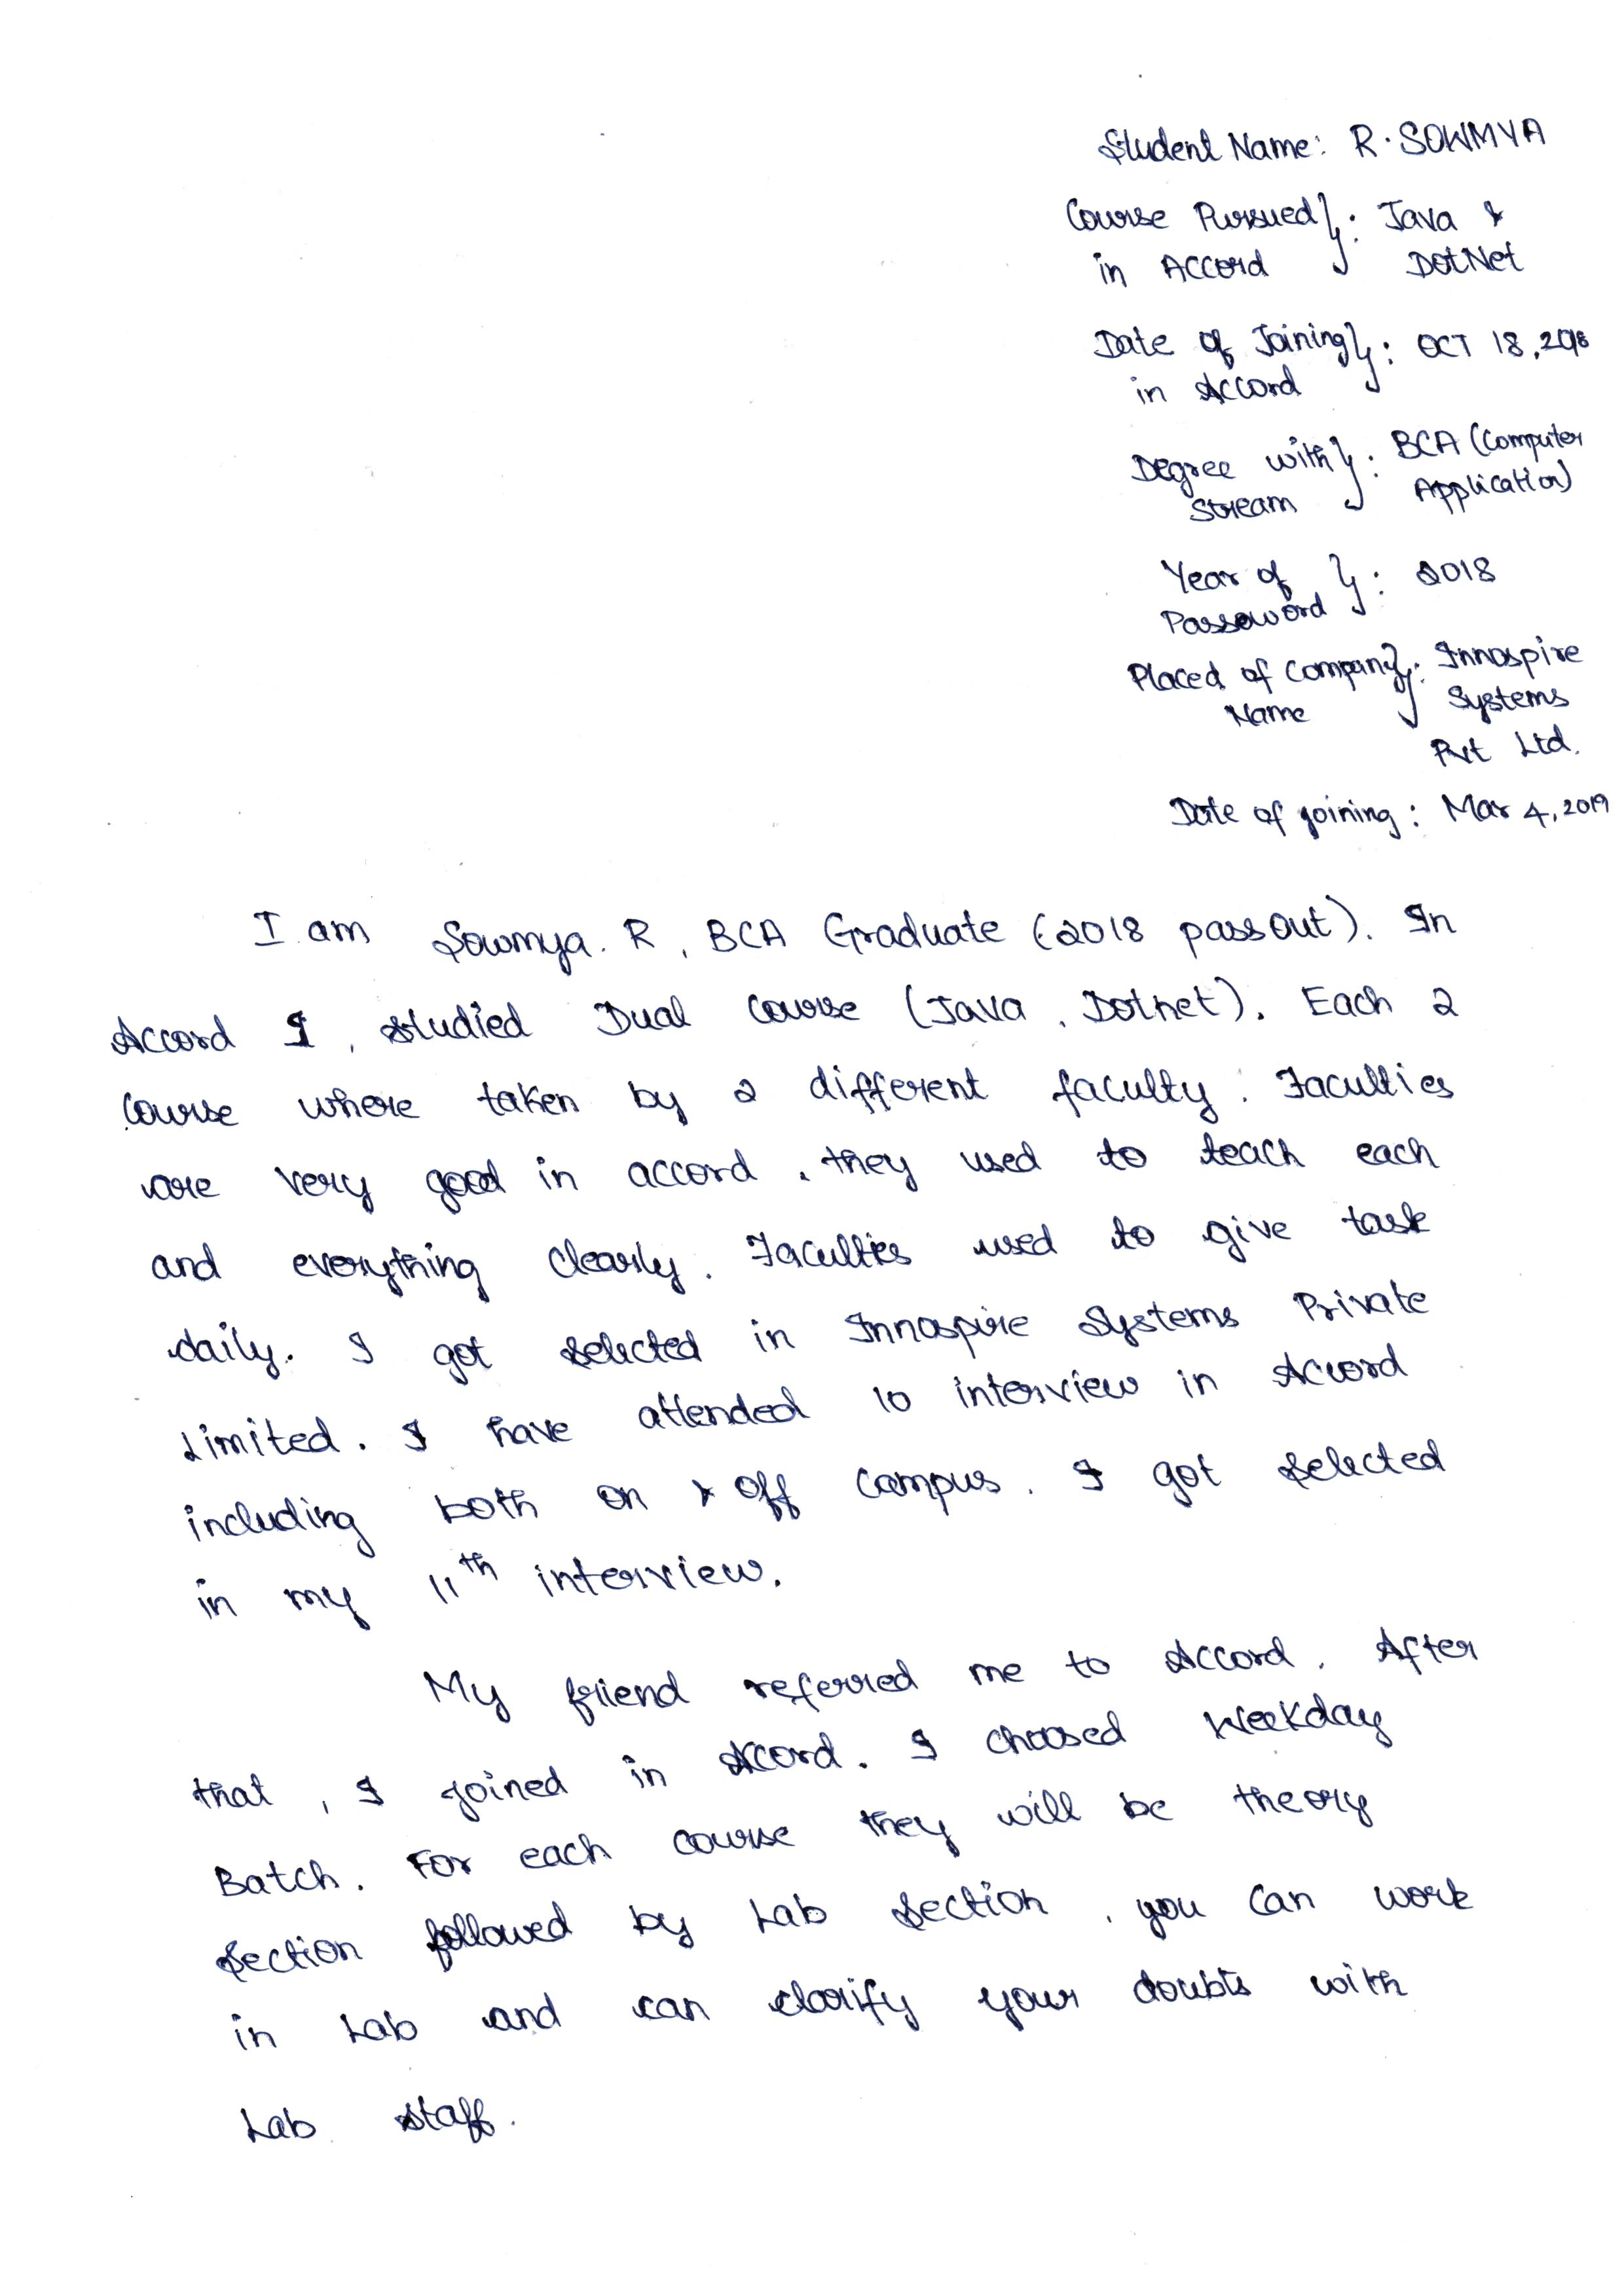 Student Name: R. SOWMYA
Course Pursued }: Java &
in Accord DotNet
Date of Joining }: OCT 18, 2018
in Accord
Degree with }: BCA (Computer
Stream Application)
Year of }: 2018
Passoword
Placed of Company }: Innospire
Name Systems
Pvt Ltd.
Date of joining : Mar 4, 2019
I am Sowmya. R, BCA Graduate (2018 passout). In
Accord I, studied Dual Course (Java, Dotnet). Each 2
Course where taken by 2 different faculty. Faculties
are very good in accord, they used to teach each
and everything clearly. Faculties used to give task
daily. I got selected in Innospire Systems Private
Limited. I have attended 10 interview in Accord
including both on & off campus. I got selected
in my 11th interview.
My friend referred me to Accord. After
that, I joined in Accord. I choosed Weekday
Batch. For each course they will be theory
section followed by Lab section, you can work
in Lab and can clarify your doubts with
Lab staff.